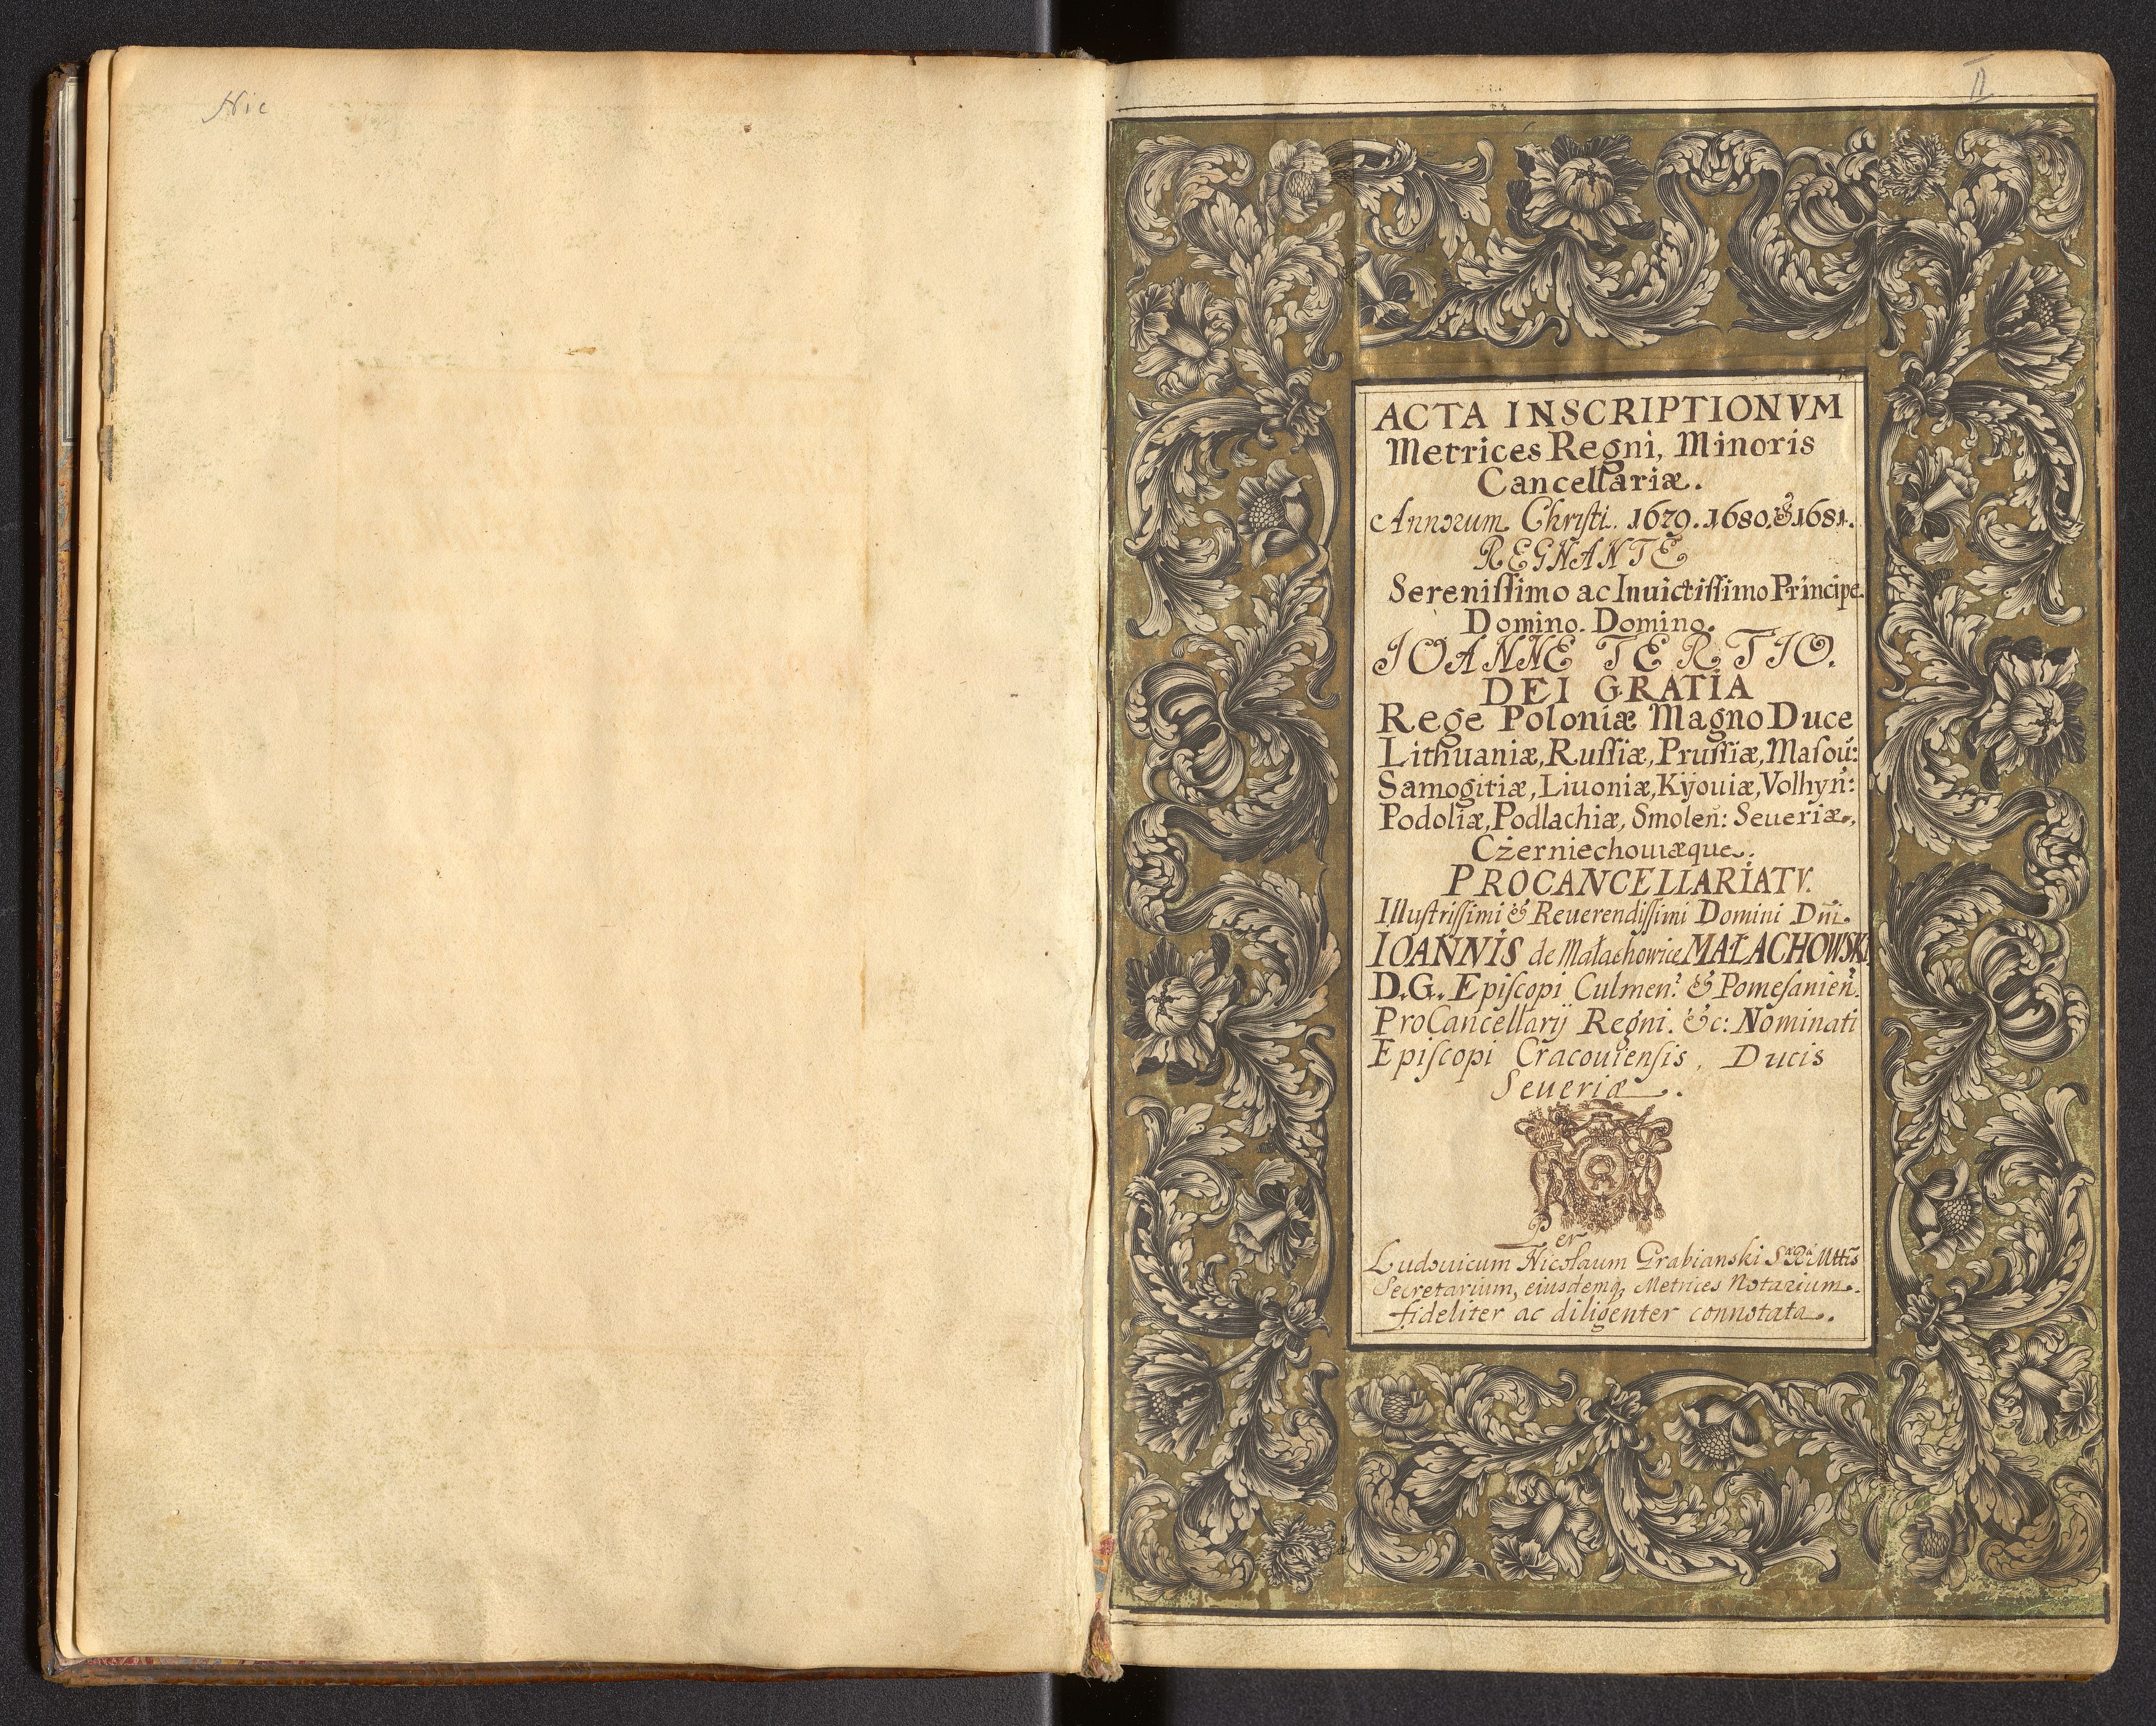 Nic
II
ACTA INSCRIPTIONVM
Metrices Regni, Minoris
Cancellariæ.
Annorum Christi. 1679. 1680. & 1681.
REGNANTE
Sereniſſimo ac Inuictiſſimo Principe.
Domino. Domino.
IOANNE TERTIO.
DEI GRATIA
Rege Poloniæ Magno Duce
Lithuaniæ, Ruſſiæ, Pruſſiæ, Maſou:
Samogitiæ, Liuoniæ, Kijouiæ, Volhyń:
Podoliæ, Podlachiæ, Smoleń: Seueriæ,
Czerniechouiæque.
PROCANCELLARIATV.
Illuſtriſſimi & Reuerendiſſimi Domini Dn̄i.
IOANNIS de Małachowice MAŁACHOWSKI
D.G. Epiſcopi Culmen: & Pomeſanień.
ProCancellarij Regni. &c: Nominati
Epiſcopi Cracouienſis, Ducis
Seueriæ.
Per
Ludouicum Nicolaum Grabianski S. R. Mttis
Secretarium, eiusdemq; Metrices Notarium.
fideliter ac diligenter connotata.